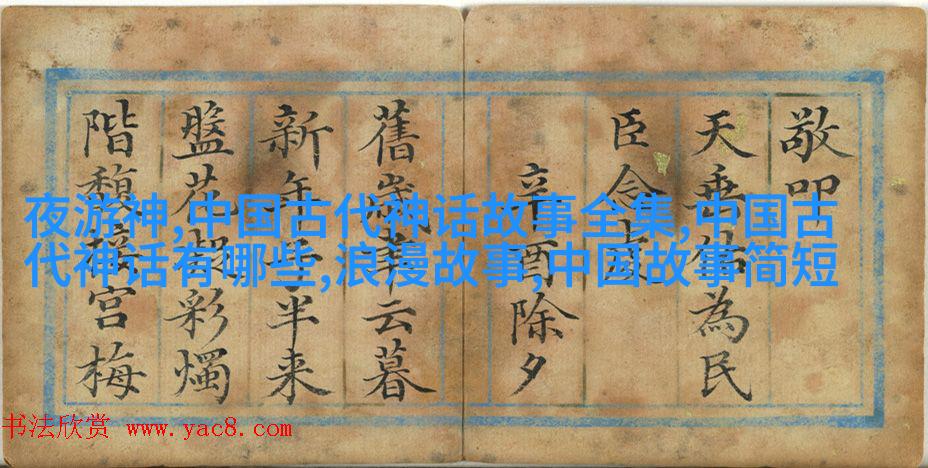 敬叩
天垂佑為民
臣念
辛酉除夕
舊歲云暮
新年半来
盤花彩燭
階馥宮梅
夜游神,中国古代神话故事全集,中国古
代神话有哪些,浪漫故事,中国故事简短
书法欣赏 www.yac8.com